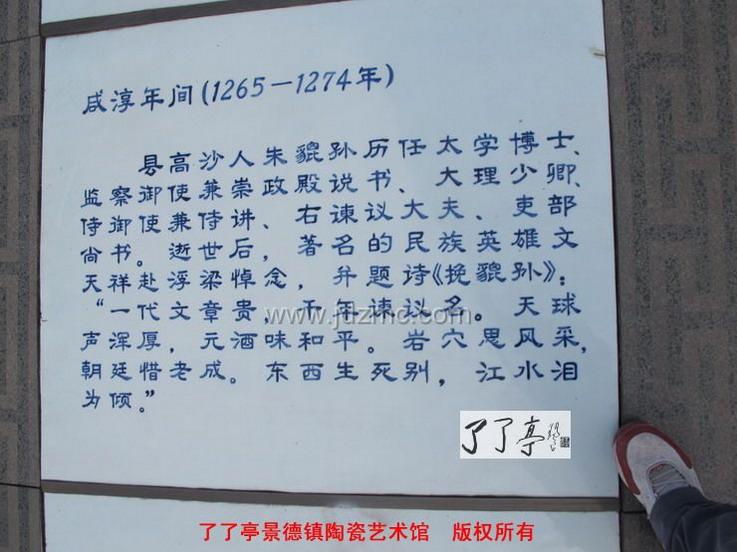 咸淳年间(1265－1274年)
县高沙人朱貔孙历任太学博士、
监察御使兼崇政殿说书、大理少卿、
侍御使兼侍讲、右谏议大夫、吏部
尚书。逝世后，著名的民族英雄文
天祥赴浮梁悼念，并题诗《挽貔孙》：
“一代文章贵，千年谏议名。天球
声浑厚，元酒味和平。岩穴思风采，
朝廷惜老成。东西生死别，江水泪
为倾。”
www.jdzmc.com
了了亭
了了亭景德镇陶瓷艺术馆 版权所有